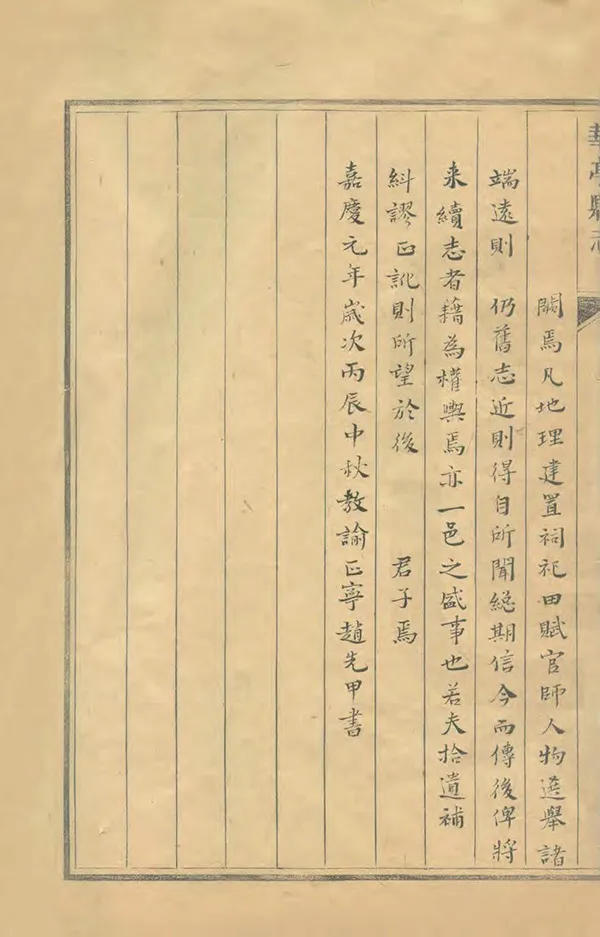 華亭縣志
闕焉凡地理建置祠祀田賦官師人物選舉諸
端遠則　仍舊志近則得自所聞總期信今而傳後俾將
来續志者藉為權輿焉亦一邑之盛事也若夫拾遺補
糾謬正訛則所望於後　君子焉
嘉慶元年歲次丙辰中秋教諭正寧趙先甲書